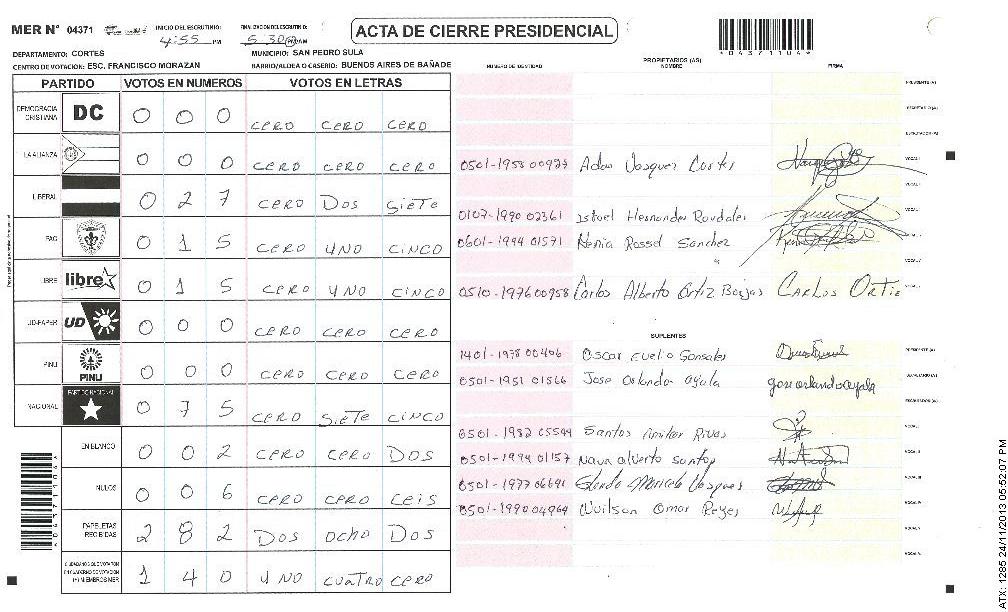 MER Nº 04371 INICIO DEL ESCRUTINIO: 4:55 PM FINALIZACION ESCRUTINIO: 5:30 PM ACTA DE CIERRE PRESIDENCIAL *04371104*
DEPARTAMENTO: CORTES MUNICIPIO: SAN PEDRO SULA
CENTRO DE VOTACION: ESC. FRANCISCO MORAZAN BARRIO/ALDEA O CASERIO: BUENOS AIRES DE BAÑADE
PARTIDO VOTOS EN NUMEROS VOTOS EN LETRAS
DEMOCRACIA CRISTIANA DC 0 0 0 CERO CERO CERO
LA ALIANZA 0 0 0 CERO CERO CERO
LIBERAL 0 2 7 CERO DOS SIETE
PAC 0 1 5 CERO UNO CINCO
LIBRE libre 0 1 5 CERO UNO CINCO
UD-FAPER UD 0 0 0 CERO CERO CERO
PINU PINU 0 0 0 CERO CERO CERO
NACIONAL PARTIDO NACIONAL 0 7 5 CERO SIETE CINCO
EN BLANCO 0 0 2 CERO CERO DOS
NULOS 0 0 6 CERO CERO CEIS
PAPELETAS RECIBIDAS 2 8 2 DOS OCHO DOS
CIUDADANOS QUE VOTARON 1 4 0 UNO CUATRO CERO
NUMERO DE IDENTIDAD PROPIETARIOS (AS) NOMBRE FIRMA
PRESIDENTE (A)
SECRETARIO (A)
ESCRUTADOR (A)
Adan Vasquez Cortes VOCAL I
0107-1990 02361 Hernandez
0601-1994 01571 Kenia Rossel Sanchez
0510-1976 00958 Carlos Alberto Ortiz Borjas CARLOS ORTIZ
SUPLENTES
1401-1978 00406 Oscar Euelio Gonsales PRESIDENTE (A)
0501-1951 01566 Jose Orlando Ayala SECRETARIO (A)
ESCRUTADOR (A)
0501-1982 05544 Santos Rivas
0501-1994 01157 alverto santos
0501-1977 06691 Maricela Vasques
0501-1990 04964 Wilson Omar Reyes
ATX: 1285 24/11/2013 05:52:07 PM